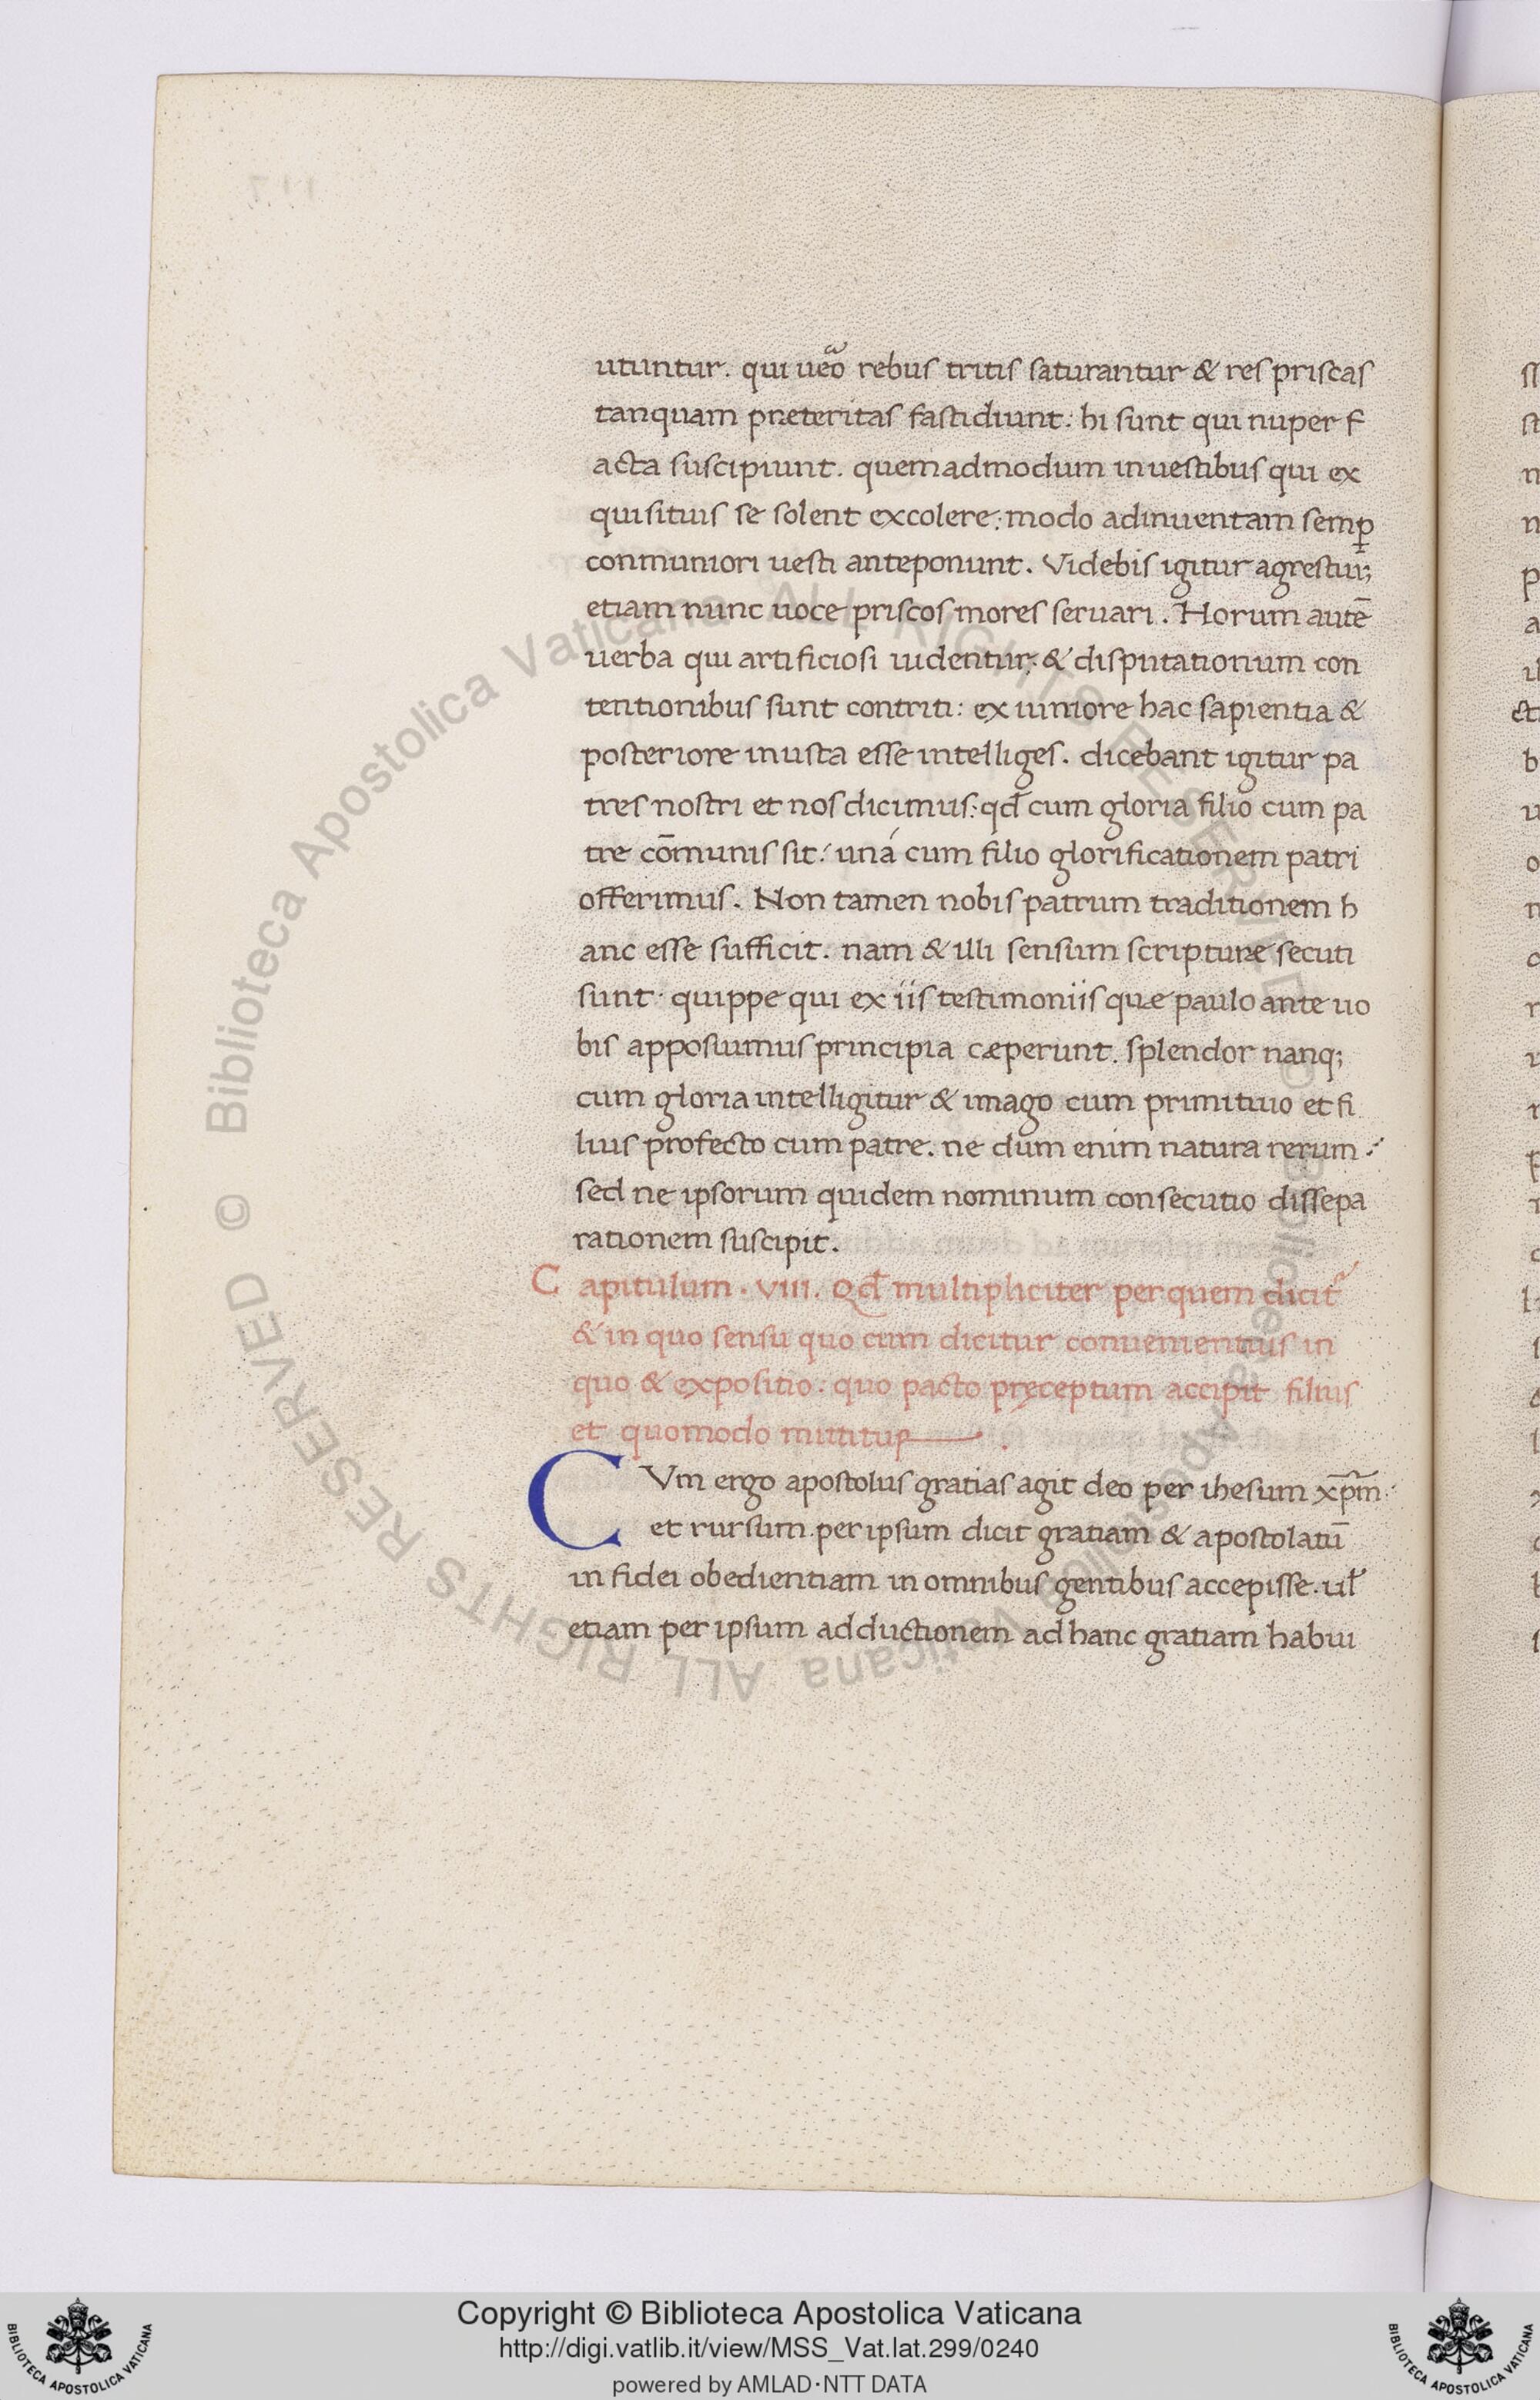 utuntur. qui ueoᷓ rebus tritis saturantur & res priscas
tanquam præteritas fastidiunt: hi sunt qui nuper f
acta suscipiunt. quemadmodum in uestibus qui ex
quisitius se solent excolere: modo adinuentam semꝑ
conmuniori uesti anteponunt. Videbis igitur agrestiur;
etiam nunc uoce priscos mores seruari. Horum autē
uerba qui artificiosi uidentur: & disputationum con
tentionibus sunt contriti: ex iuniore hac sapientia &
posteriore inusta esse intelliges. dicebant igitur pa
tres nostri et nos dicimus: qđ cum gloria filio cum pa
tre cōmunis sit: uná cum filio glorificationem patri
offerimus. Non tamen nobis patrum traditionem h
anc esse sufficit. nam & illi sensum scripturæ secuti
sunt. quippe qui ex iis testimoniis quæ paulo ante uo
bis apposuimus principia cæperunt. splendor nanq;
cum gloria intelligitur & imago cum primitiuo et fi
lius profecto cum patre. ne dum enim natura rerum:
sed ne ipsorum quidem nominum consecutio dissepa
rationem suscipit.
Capitulum. VIII. Qđ multipliciter per quem dicit᷑
& in quo sensu quo cum dicitur conuenientius in
quo & expositio. quo pacto pręceptum accipit filius
et quomodo mittitur.
CVm ergo apostolus gratias agit deo per ihesum xp̄m:
et rursum per ipsum dicit gratiam & apostolatū
in fidei obedientiam in omnibus gentibus accepisse. ul̵
etiam per ipsum adductionem ad hanc gratiam habui
© Biblioteca Apostolica Vaticana ALL RIGHTS RESERVED
© Biblioteca Apostolica Vaticana ALL RIGHTS RESERVED
Copyright © Biblioteca Apostolica Vaticana
http://digi.vatlib.it/view/MSS_Vat.lat.299/0240
powered by AMLAD·NTT DATA
BIBLIOTECA APOSTOLICA VATICANA
BIBLIOTECA APOSTOLICA VATICANA